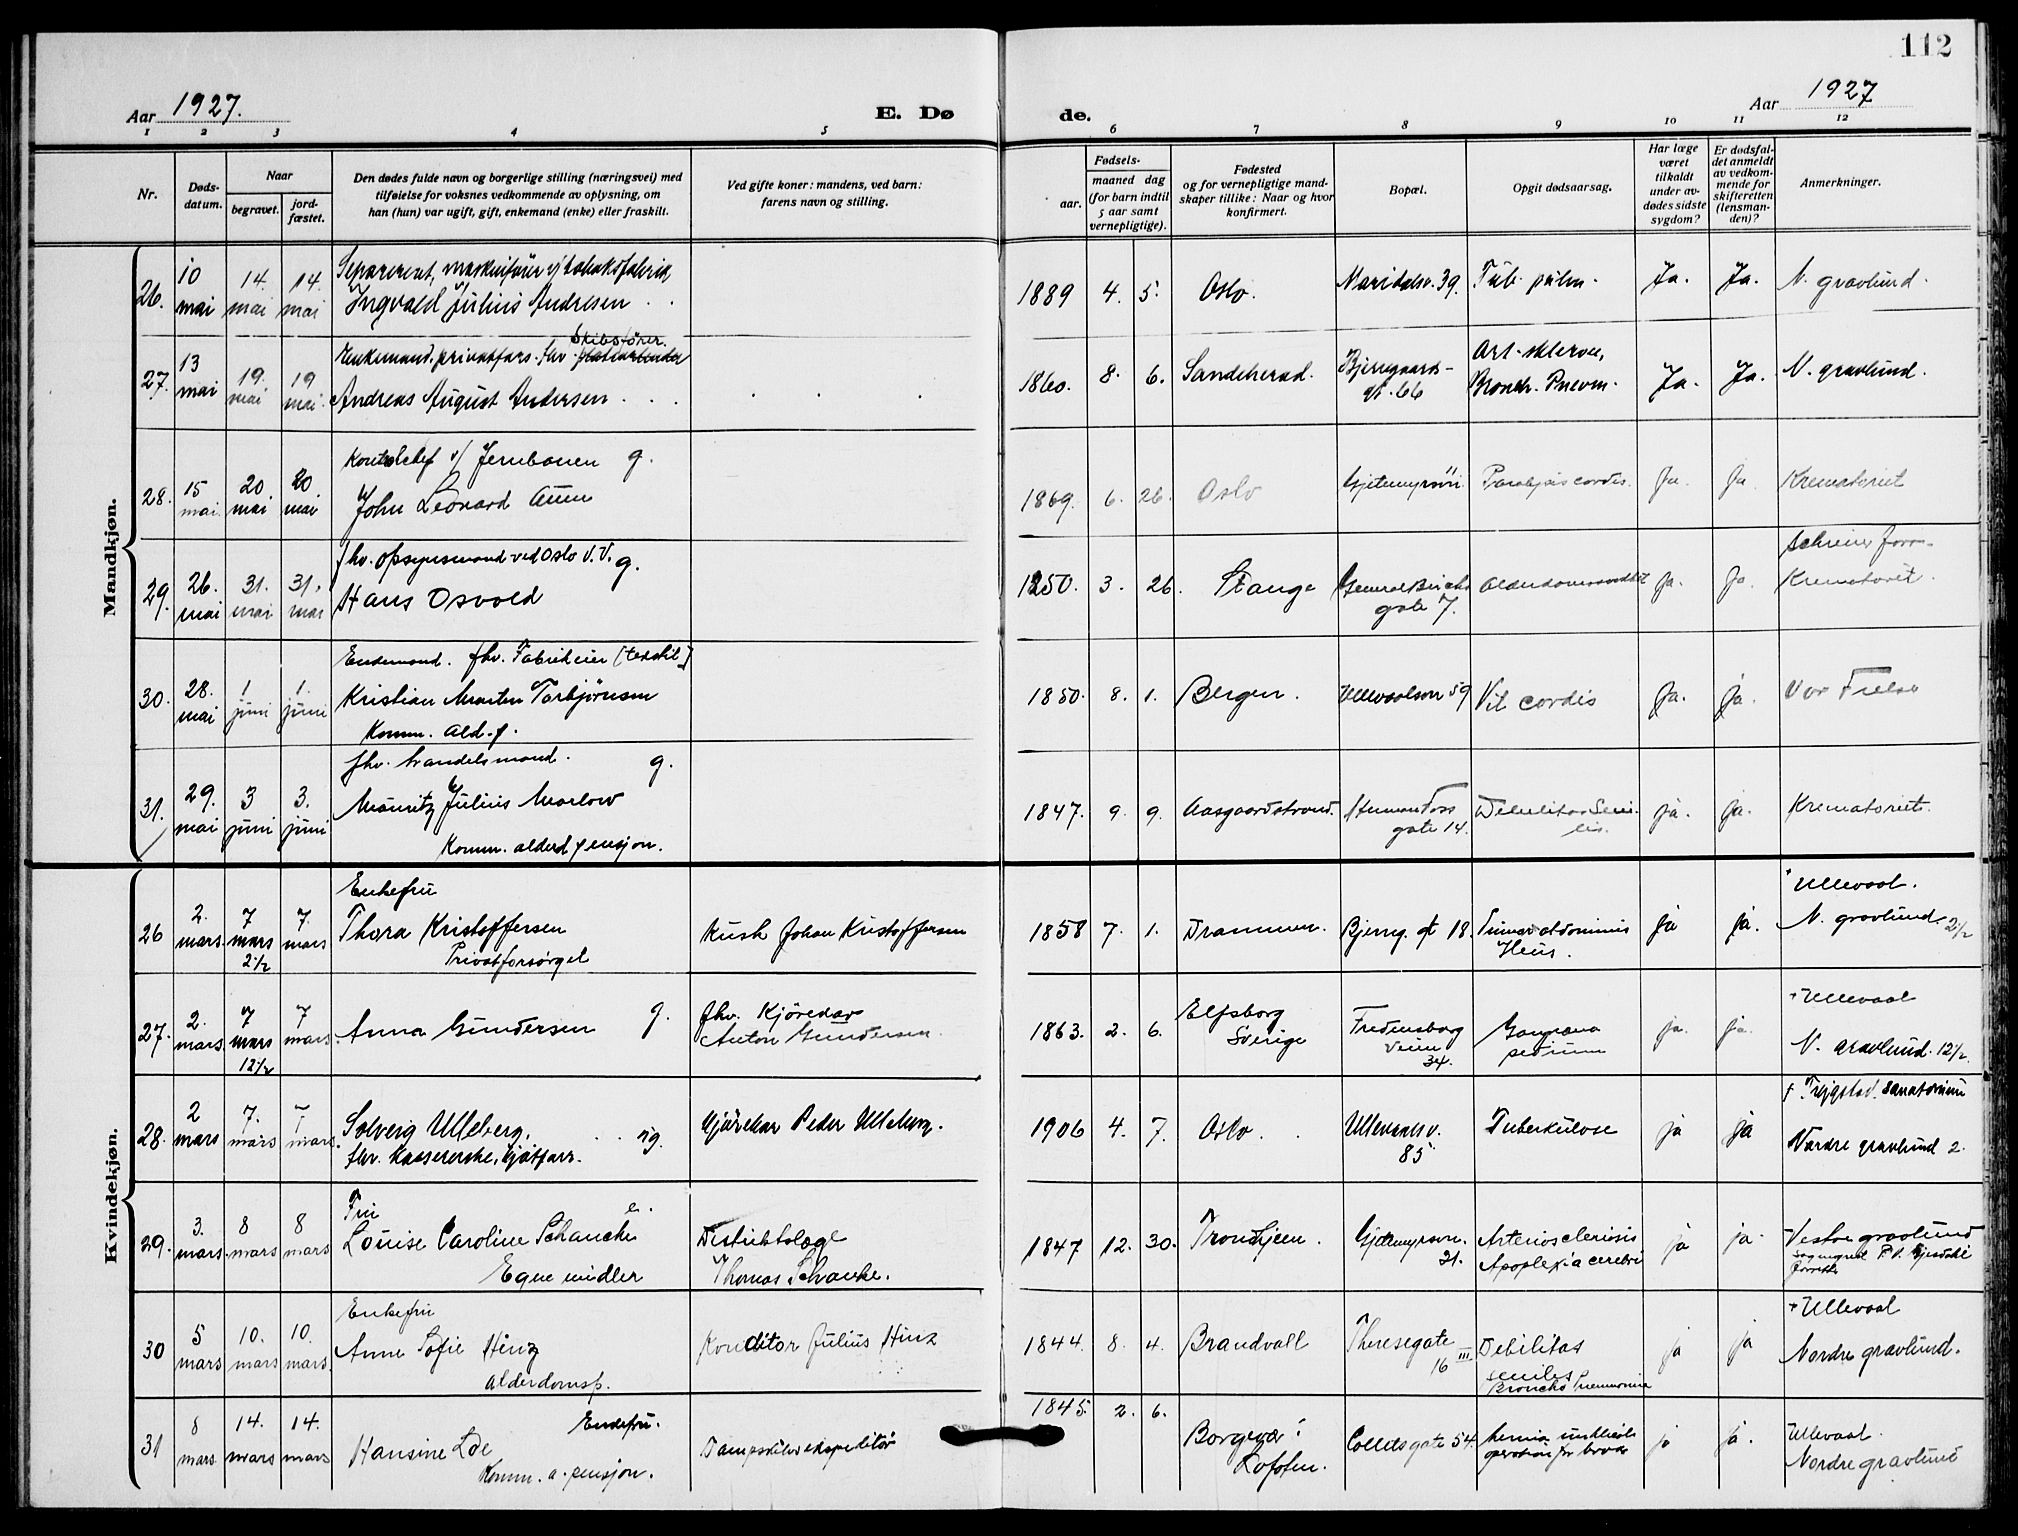 112
Aar 1927.
E. Døde.
Aar 1927
1 2 3 4 5 6 7 8 9 10 11 12
Nr.
Døds-
datum.
Naar
begravet.
jord-
fæstet.
Den dødes fulde navn og borgerlige stilling (næringsvei) med
tilføielse for voksnes vedkommende av oplysning, om
han (hun) var ugift, gift, enkemand (enke) eller fraskilt.
Ved gifte koner: mandens, ved barn:
farens navn og stilling.
Fødsels-
aar.
maaned dag
(for barn indtil
5 aar samt
vernepligtige).
Fødested
og for vernepligtige mand-
skaper tillike: Naar og hvor
konfirmert.
Bopæl.
Opgit dødsaarsag.
Har læge
været
tilkaldt
under av-
dødes sidste
sygdom?
Er dødsfal-
det anmeldt
av vedkom-
mende for
skifteretten
(lensman-
den)?
Anmerkninger.
Mandkjøn.
26. 10 mai 14. mai 14. mai
Separeret, maskinfører v/ tobaksfabrik,
Ingvald Julius Andresen
1889 4. 5. Oslo. Maridalsv. 39. Tub. pulm. Ja. Ja. N. gravlund.
27. 13 mai 19. mai 19 mai.
Enkemand. privatfors. fhv. Skibsfører.
Andreas August Andersen
1860. 8. 6. Sandeherad. Bjerregaards-
gt. 66
Art. sklerose,
Bronch. Pnevm. Ja. Ja. N. gravlund.
28. 15 mai. 20. mai 20. mai
Kontorchef v/ Jernbanen g.
John Leonard Aum
1869. 6. 26. Oslo Gjetemyrsvn. Paralysis cordis. Ja. Ja. Krematoriet
29. 26. mai 31. mai 31. mai
fhv. opsynsmand ved Oslo V.V. g.
Hans Osvold
1850. 3. 26. Stange General Birchs
gate 7.
Ja. Ja. Schreiner
Krematoriet.
30. 28. mai 1 juni 1. juni
Enkemand. fhv. Fabrikeier (tekstil)
Kristian Morten Torbjørnsen
Komm. ald. p.
1850. 8. 1. Bergen. Ullevaalsvn 59 Vit cordis Ja. ja. Vor Frelse
31. 29. mai 3 juni 3. juni
fhv. handelsmand. g.
Mauritz Julius Marlow
Komm. alderd pensjon.
1847. 9. 9. Aasgaardstrand. Herman Foss
gate 14.
Debilitas Seni-
lis. ja. ja. Krematoriet.
Kvindekjøn.
26 2. mars. 7 mars 2½ 7. mars
Enkefru
Thora Kristoffersen
Privatforsørget
Kusk Johan Kristoffersen
1858 7. 1. Drammen. Bjerreg. gt 18. Tumor abdominis
Ileus. ja ja. + Ullevaal.
N. gravlund. 2½
27. 2. mars 7 mars 12½ 7 mars.
Anna Gundersen g.
fhv. Kjøredar
Anton Gundersen.
1863. 2. 6. Elfsborg
Sverige
Fredensborg
veien
34.
Gangræna
pedium ja. ja. + Ullevaal
N. gravlund. 12½.
28. 2 mars 7. mars 7 mars.
Solveig Ulleberg. ug.
fhv. Kassererske,
Kjørekar Peder Ulleberg.
1906 4. 7. Oslo. Ullevaalsv.
85
Tuberkulose ja ja + Trygstad. Sanatorium
Nordre gravlund 2.
29. 3. mars. 8 mars 8 mars
Fru e.
Louise Caroline Schancke
Egne midler
Distriktslæge
Thomas Schancke.
1847 12. 30. Trondhjem. Gjetemyrsvn.
21.
Arteriosclerosis
Apoplexia cerebri ja ja. Vestre gravlund
sogneprest P.V. Gjesdahl
forrettet
30 5 mars 10. mars 10. mars.
Enkefru
Anne Sofie Hinz
alderdomsp.
Konditor Julius Hinz
1844. 8. 4. Brandvall Theresegate
16 III
Debilitas
seniles
Broncho Pneumonie ja ja + Ullevaal
Nordre gravlund.
31 8 mars 14. mars 14. mars
Enkefru.
Hansine Loe
Komm. a. pensjon.
Dampskibsekspeditør
1845. 2. 6. Borgevær i
Lofoten.
Colletsgate 54.
hernia umbilicalis
operation for brok ja ja. Ullevaal.
Nordre gravlund